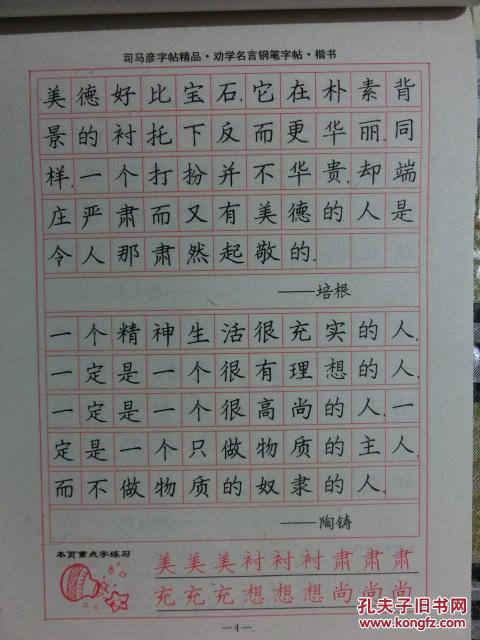 司马彦字帖精品·劝学名言钢笔字帖·楷书
美德好比宝石,它在朴素背
景的衬托下反而更华丽.同
样,一个打扮并不华贵,却端
庄严肃而又有美德的人是
令人那肃然起敬的.
——培根
一个精神生活很充实的人,
一定是一个很有理想的人,
一定是一个很高尚的人,一
定是一个只做物质的主人,
而不做物质的奴隶的人.
——陶铸
本页重点字练习
美美美衬衬衬肃肃肃
充充充想想想尚尚尚
—4—
孔夫子旧书网
www.kongfz.com